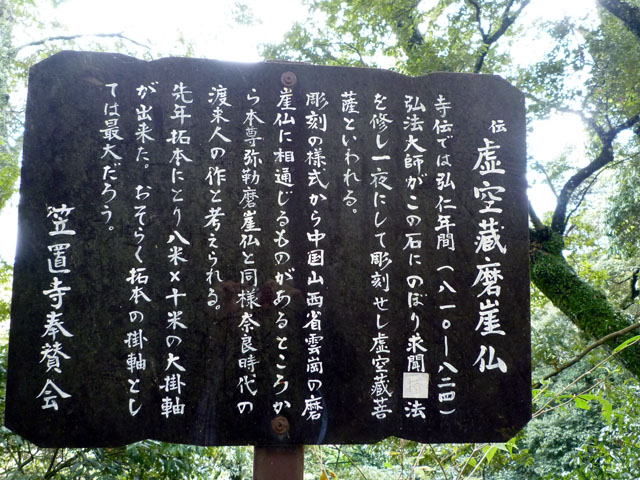 伝 虚空蔵磨崖仏
寺伝では弘仁年間(八一〇ー八二四)
弘法大師がこの石にのぼり求聞持法
を修し一夜にして彫刻せし虚空蔵菩
薩といわれる。
彫刻の様式から中国山西省雲崗の磨
崖仏に相通じるものがあるところか
ら本尊弥勒磨崖仏と同様奈良時代の
渡来人の作と考えられる。
先年拓本にとり八米×十米の大掛軸
が出来た。おそらく拓本の掛軸とし
ては最大だろう。
笠置寺奉賛会